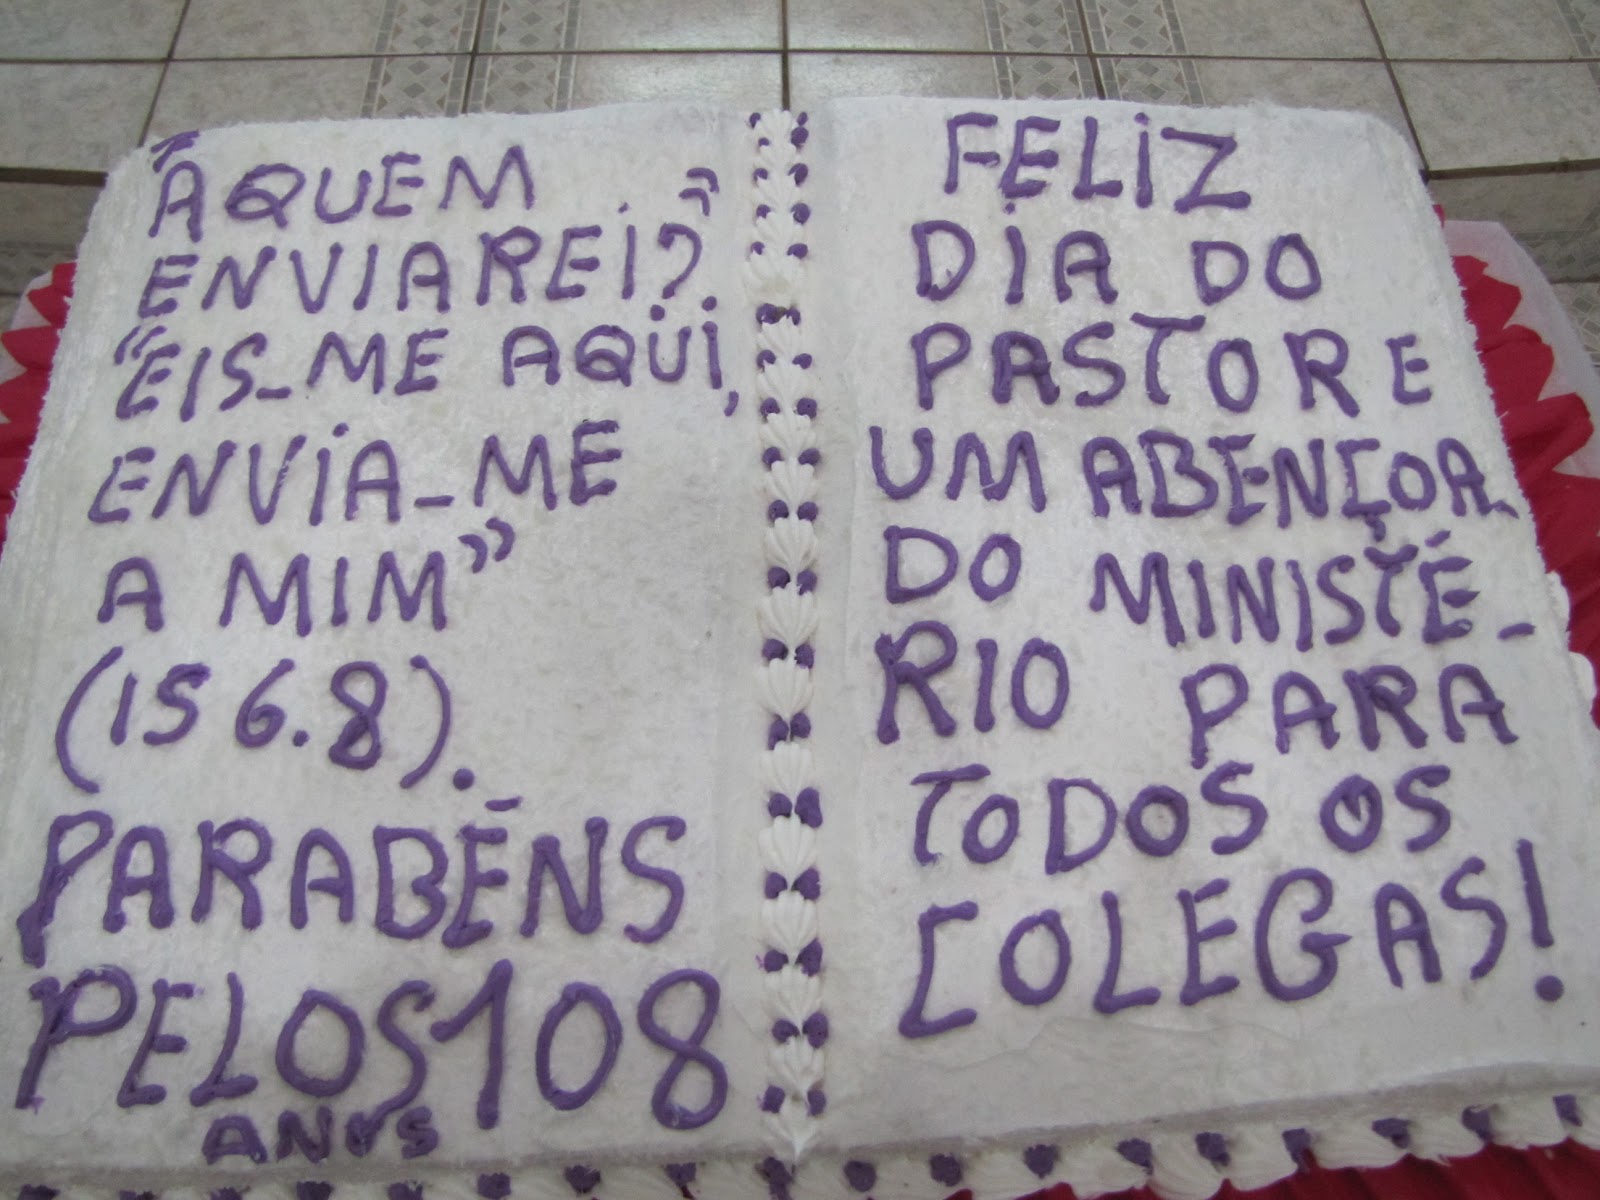 "A QUEM
ENVIAREI?"
"EIS-ME AQUI,
ENVIA-ME
A MIM"
(IS 6.8).
PARABÉNS
PELOS 108
ANOS
FELIZ
DIA DO
PASTOR E
UM ABENÇOA-
DO MINISTÉ-
RIO PARA
TODOS OS
COLEGAS!